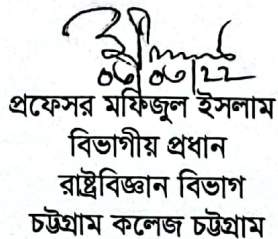 ০৬/০৬/22
প্রফেসর মফিজুল ইসলাম
বিভাগীয় প্রধান
রাষ্ট্রবিজ্ঞান বিভাগ
চট্টগ্রাম কলেজ চট্টগ্রাম